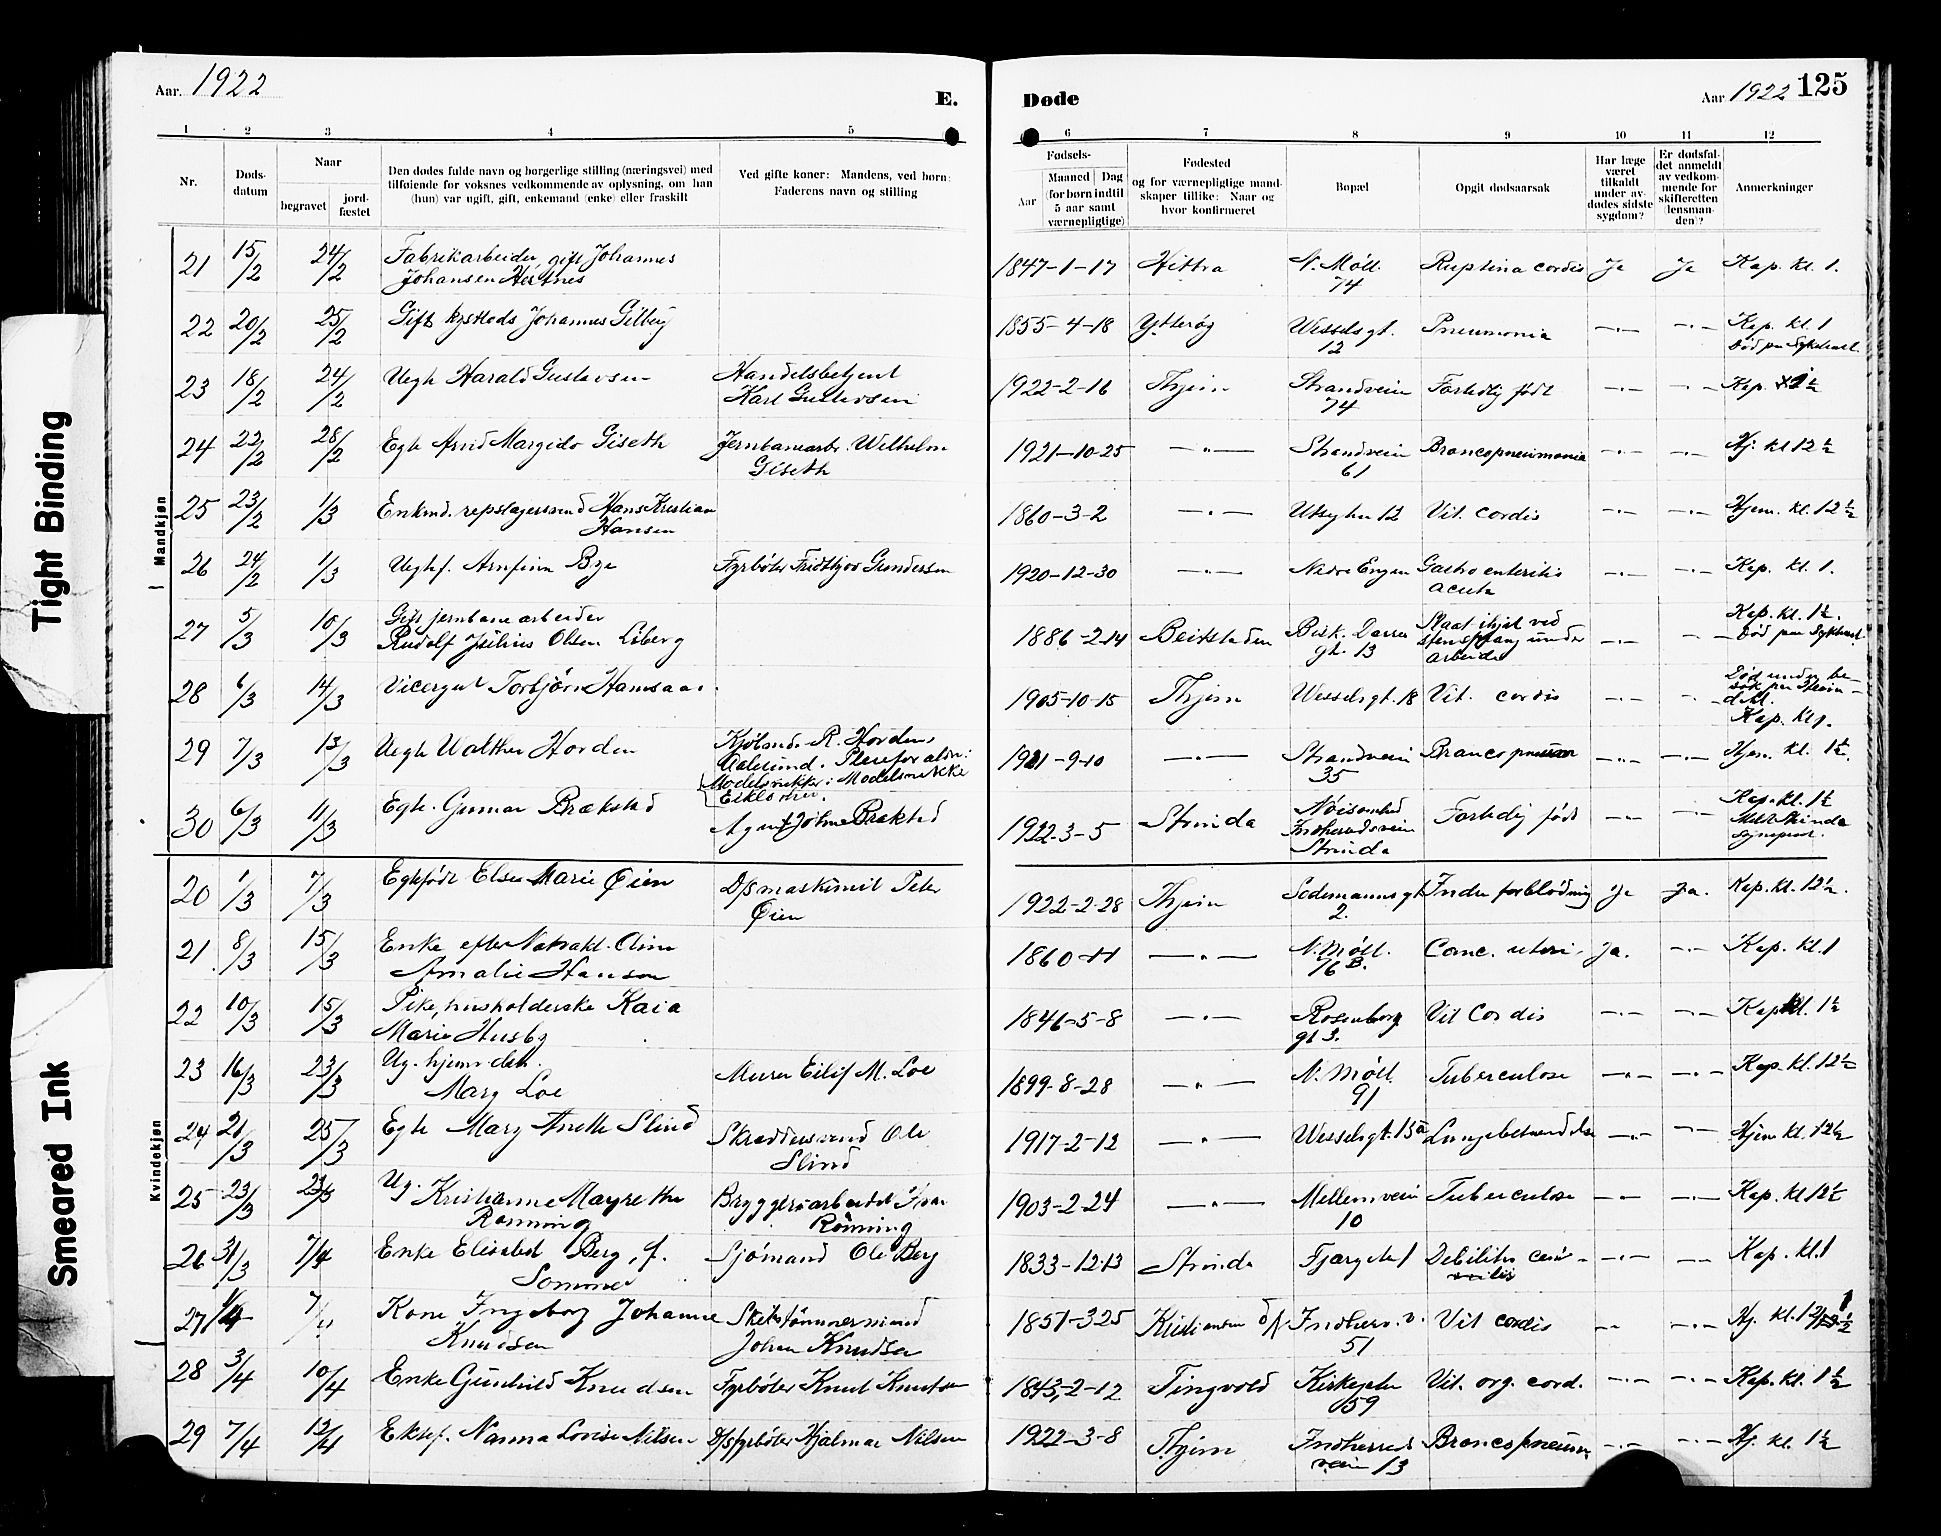 Aar. 1922
E.
Døde
Aar 1922 125
1 2 3 4 5 6 7 8 9 10 11 12
Nr.
Døds-
datum
Naar
begravet
jord-
fæstet
Den dødes fulde navn og borgerlige stilling (næringsvei) med
tilføiende for voksnes vedkommende av oplysning, om han
(hun) var ugift, gift, enkemand (enke) eller fraskilt
Ved gifte koner: Mandens, ved børn:
Faderens navn og stilling
Fødsels-
Aar
Maaned Dag
(for børn indtil
5 aar samt
værnepligtige)
Fødested
og for værnepligtige mand-
skaper tillike: Naar og
hvor konfirmeret
Bopæl
Opgit dødsaarsak
Har læge
været
tilkaldt
under av-
dødes sidste
sygdom?
Er dødsfal-
det anmeldt
av vedkom-
mende for
skifteretten
(lensman-
den)?
Anmerkninger
Mandkjøn
21 15/2 24/2 Fabrikarbeider, gift Johannes
Johansen Hestnes
1847-1-17 Hittra N. Möll. 74 Ruptina cordis Ja Ja Kap. kl. 1.
22 20/2 25/2 Gift Johannes Gilberg
1855-4-18 Ytterøy Wesselsgt. 12 Pneumonia —"— —"— Kap. kl. 1
Død paa Sykehuset
23 18/2 24/2 Uegte Harald Gustavsen
Handelsbetjent
Karl Gustavsen
1922-2-16 Thjem Strandvein 74 Fortidlig født —"— —"— Kap. 1½
24 22/2 28/2 Egte Arnd Margido Giseth
Jernbanearb. Wilhelm
Giseth
1921-10-25 —"— Strandvein 61 Broncopneumonia —"— —"— Hj. kl 12½
25 23/2 1/3 Enkmd. repslagersvend Hans Kristian
Hansen
1860-3-2 —"— 12 Vit. cordis —"— —"— Hjem. kl. 12½
26 24/2 1/3 Uegtef. Arnfinn Bye
Fyrbøter Fridtjov Gundersen
1920-12-30 —"— Nedre Enggn Gastro enteritis
acuta —"— —"— Kap. kl. 1.
27 5/3 10/3 Gift jernbanearbeider
Rudolf Julius Olsen Liberg
1886-2-14 Beitstaden Bisk. Darres
gt. 13 Slaat ihjel ved
stensprang under
arbeide —"— —"— Kap. kl. 1½.
Død paa Sykehuset
28 6/3 14/3 Visergut Torbjørn Hamsaas.
1905-10-15 Thjem Wesselsgt. 18 Vit. cordis —"— —"— Død under be-
søk paa Stein-
dal.
Kap. kl 1.
29 7/3 13/3 Uegte Walther Horden
Kjøbmd. R. Horden,
Aalesund. Pleieforældre:
Modelsnekker
1921-9-10 —"— Strandvein 35 Broncopneum —"— —"— Hjem. kl. 1½.
30 6/3 11/3 Egte. Gunnar Brækstad
Agent Johne Brækstad
1922-3-5 Strinda Nøisomhed
Indherredsvein
Strinda Fortidlig født —"— —"— Kap. kl. 1½
Kvindekjøn
20 1/3 7/3 Egtefødt Else Marie Øien
D/S maskinist Peter
Øien
1922-2-28 Thjem Sodemannsgt
2. Indre forblødning Ja Ja. Kap. kl. 12½.
21 8/3 15/3 Enke efter Aline
Amalie Hansen
1860-11 —"— N. Möll.
76 B. Canc. uteri. Ja. —"— Kap. kl. 1
22 10/3 15/3 Pike, husholderske Kaia
Marie Husby
1846-5-8 —"— Rosenborg
gt 3. Vit Cordis Kap kl. 1½
23 16/3 23/3 Ug. hjemv. datt.
Mary Loe
Murer Eilif M. Loe
1899-8-28 —"— N. Möll.
91 Tuberculose —"— —"— Kap. kl. 12½
24 21/3 25/3 Egte Mary Anette Slind
Skræddersvend Ole
Slind
1917-2-12 —"— Wesselsgt. 15a Lungebetændelse —"— —"— Hjem kl. 12½
25 23/3 23/3 Ug.
Kristianne Margrethe
Rønning
Bryggeriarbeidet Ivar
Rønning
1903-2-24 —"— Mellemvein
10 Tuberculose —"— —"— Kap. kl 12½
26 31/3 7/4 Enke Elisabet Berg, f.
Sommer
Sjömand Ole Berg
1833-12-13 Strinda Fjærgeta 1 Debilitas —"— —"— Kap. kl. 1
27 1/4 7/4 Kone Ingeborg Johanne
Knudsen
Skibstømmermand
Johan Knudsen
1851-3-25 Kristiansun Indherr. v.
51 Vit cordis —"— —"— Hj. kl. 12½
28 3/4 10/4 Enke Gunhild Knudsen
Fyrbøter Knut Knutsen
1843-2-12 Tingvold Kirkegeta
59 Vit. org. cord. —"— —"— Kap. kl. 1½
29 7/4 12/4 Ektef. Nanna Lovise Nilsen
D/S fyrbøter Hjalmar Nilsen
1922-3-8 Thjem Indherreds
vein 13 Broncopneum —"— —"— Hj. kl. 1½
Tight Binding
Smeared Ink